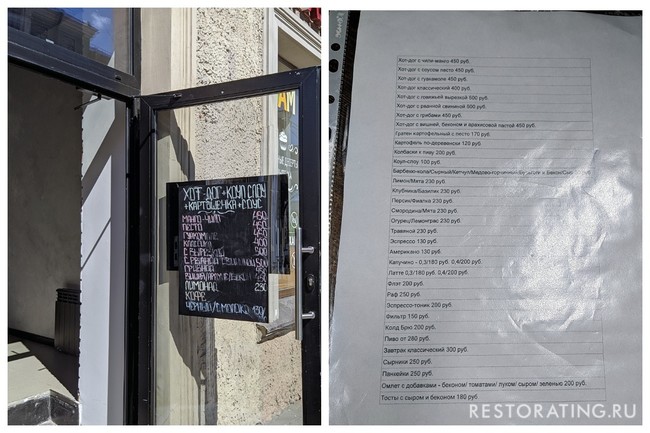 ХОТ-ДОГ+КОУЛ СЛОУ
+КАРТОШЕЧКА+СОУС
МАНГО-ЧИЛИ 450
ПЕСТО 450
КЛАССИКА 400
С ВЫРЕЗКОЙ 500
ЛИМОНАД 230
КОФЕ
Хот-дог с чили-манго 450 руб.
Хот-дог с соусом песто 450 руб.
Хот-дог с гуакамоле 450 руб.
Хот-дог классический 400 руб.
Хот-дог с говяжьей вырезкой 500 руб.
Хот-дог с рваной свининой 500 руб.
Хот-дог с грибами 450 руб.
Хот-дог с вишней, беконом и арахисовой пастой 450 руб.
Гратен картофельный с песто 170 руб.
Картофель по-деревенски 120 руб.
Колбаски к пиву 200 руб.
Коул-слоу 100 руб.
Лимон/Мята 230 руб.
Клубника/Базилик 230 руб.
Персик/Фиалка 230 руб.
Смородина/Мята 230 руб.
Огурец/Лемонграс 230 руб.
Травяной 230 руб.
Эспрессо 130 руб.
Американо 130 руб.
Капучино - 0,3/180 руб. 0,4/200 руб.
Латте 0,3/180 руб. 0,4/200 руб.
Флэт 200 руб.
Раф 250 руб.
Эспрессо-тоник 200 руб.
Фильтр 150 руб.
Колд Брю 200 руб.
Пиво от 280 руб.
Завтрак классический 300 руб.
Сырники 250 руб.
Панкейки 250 руб.
Омлет с добавками - беконом/ томатами/ луком/ сыром/ зеленью 200 руб.
Тосты с сыром и беконом 180 руб.
RESTORATING.RU